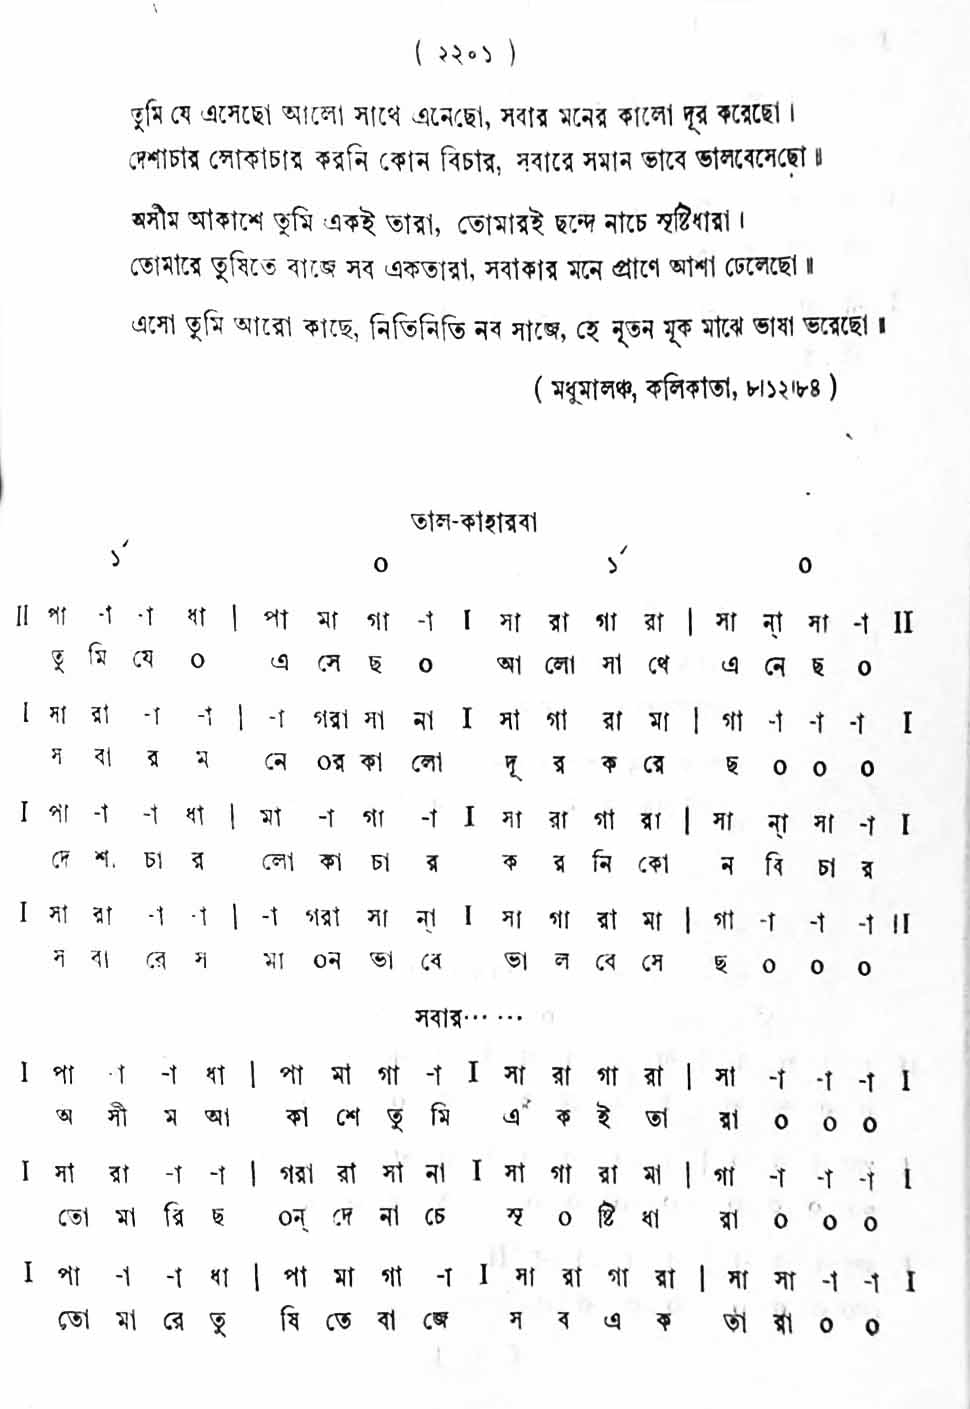 ( ২২০১ )
তুমি যে এসেছো আলো সাথে এনেছো, সবার মনের কালো দূর করেছো ।
দেশাচার লোকাচার করনি কোন বিচার, সবারে সমান ভাবে ভালবেসেছো ॥
অসীম আকাশে তুমি একই তারা, তোমারই ছন্দে নাচে সৃষ্টিধারা ।
তোমারে তুষিতে বাজে সব একতারা, সবাকার মনে প্রাণে আশা ঢেলেছো ॥
এসো তুমি আরো কাছে, নিতিনিতি নব সাজে, হে নূতন মূক মাঝে ভাষা ভরেছো ॥
( মধুমালঞ্চ, কলিকাতা, ৮।১২।৮৪ )
তাল-কাহারবা
১´ ০ ১´ ০
II পা -া -া ধা | পা মা গা -া I সা রা গা রা | সা ন্া সা -া II
তু মি যে ০ এ সে ছ ০ আ লো সা থে এ নে ছ ০
I সা রা -া -া | -া গরা সা না I সা গা রা মা | গা -া -া -া I
স বা র ম নে ০র কা লো দূ র ক রে ছ ০ ০ ০
I পা -া -া ধা | মা -া গা -া I সা রা গা রা | সা ন্া সা -া I
দে শ. চা র লো কা চা র ক র নি কো ন বি চা র
I সা রা -া -া | -া গরা সা ন্া I সা গা রা মা | গা -া -া -া II
স বা রে স মা ০ন ভা বে ভা ল বে সে ছ ০ ০ ০
সবার... ...
I পা -া -া ধা | পা মা গা -া I সা রা গা রা | সা -া -া -া I
অ সী ম আ কা শে তু মি এ ক ই তা রা ০ ০ ০
I সা রা -া -া | গরা রা সা না I সা গা রা মা | গা -া -া -া I
তো মা রি ছ ০ন্ দে না চে সৃ ০ ষ্টি ধা রা ০ ০ ০
I পা -া -া ধা | পা মা গা -া I সা রা গা রা | সা সা -া -া I
তো মা রে তু ষি তে বা জে স ব এ ক তা রা ০ ০